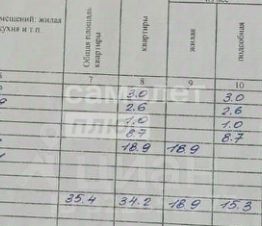 мещений: жилая
кухня и т.п.
Общая площадь квартиры
квартиры
жилая
подсобная
7 8 9 10
3.0 3.0
2.6 2.6
1.0 1.0
8.7 8.7
18.9 18.9
35.4 34.2 18.9 15.3
самолет
плюс